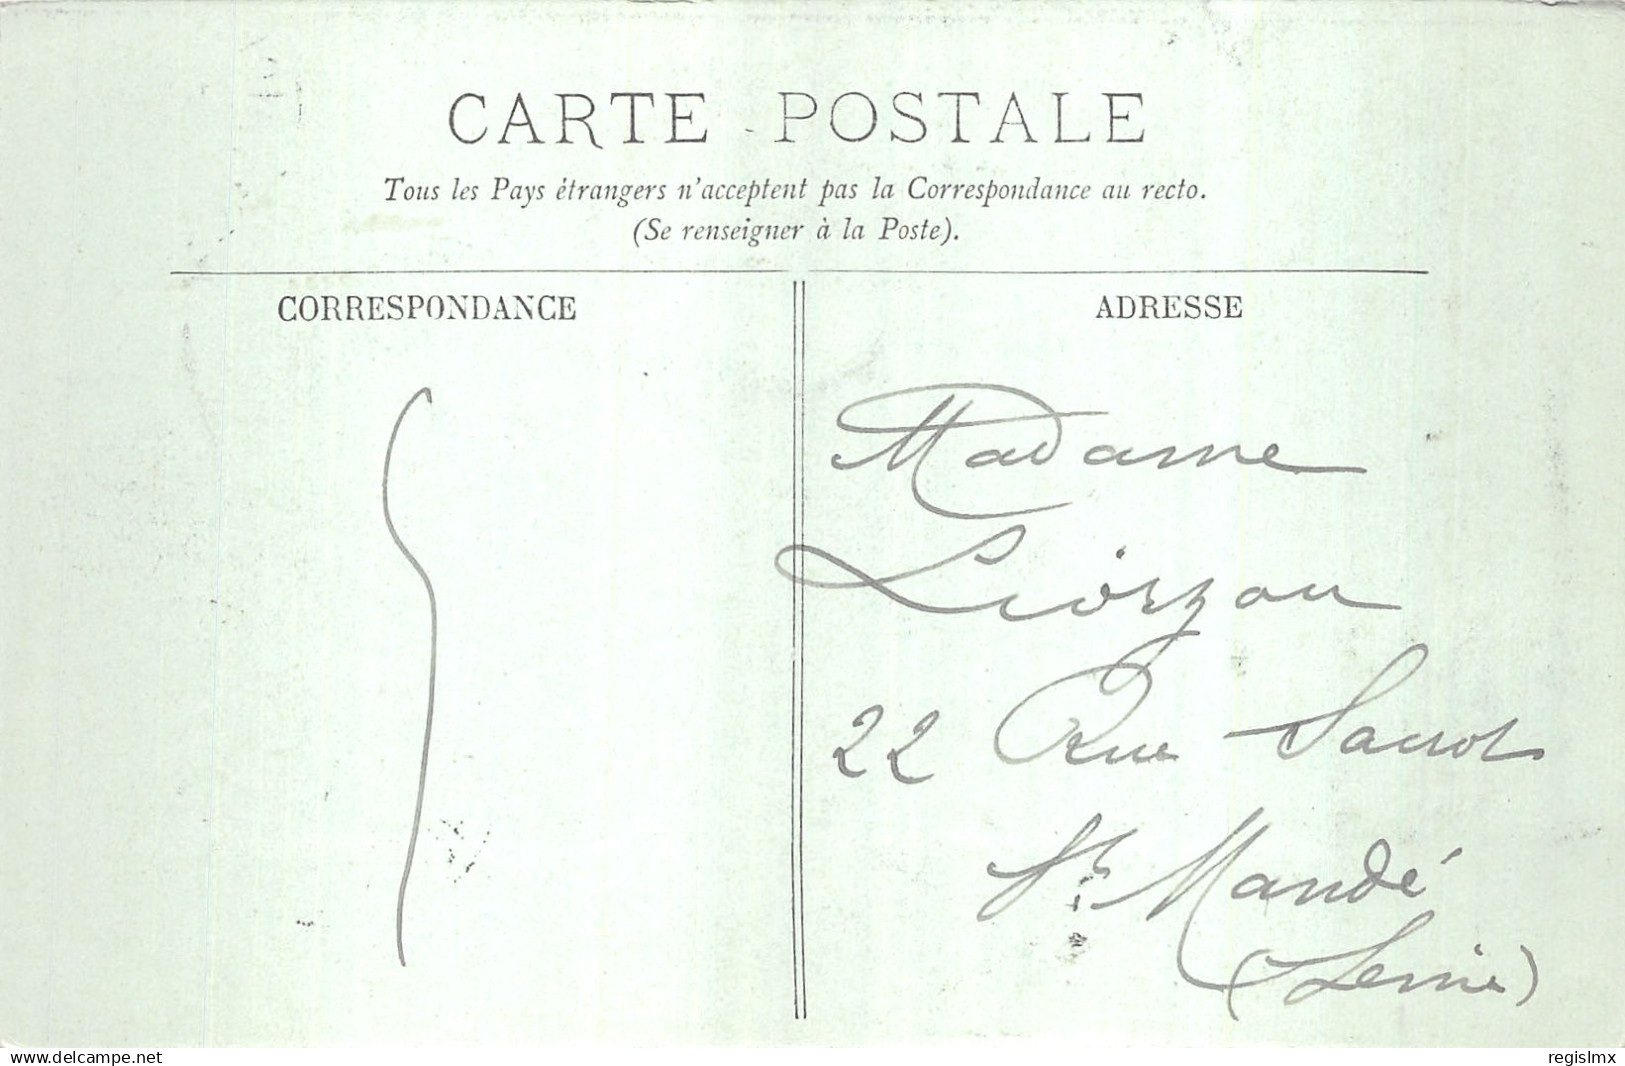 CARTE POSTALE
Tous les Pays étrangers n'acceptent pas la Correspondance au recto.
(Se renseigner à la Poste).
CORRESPONDANCE
ADRESSE
Madame
Liorzou
22 Rue Sacrot
St Mandé
(Seine)
www.delcampe.net
regislmx